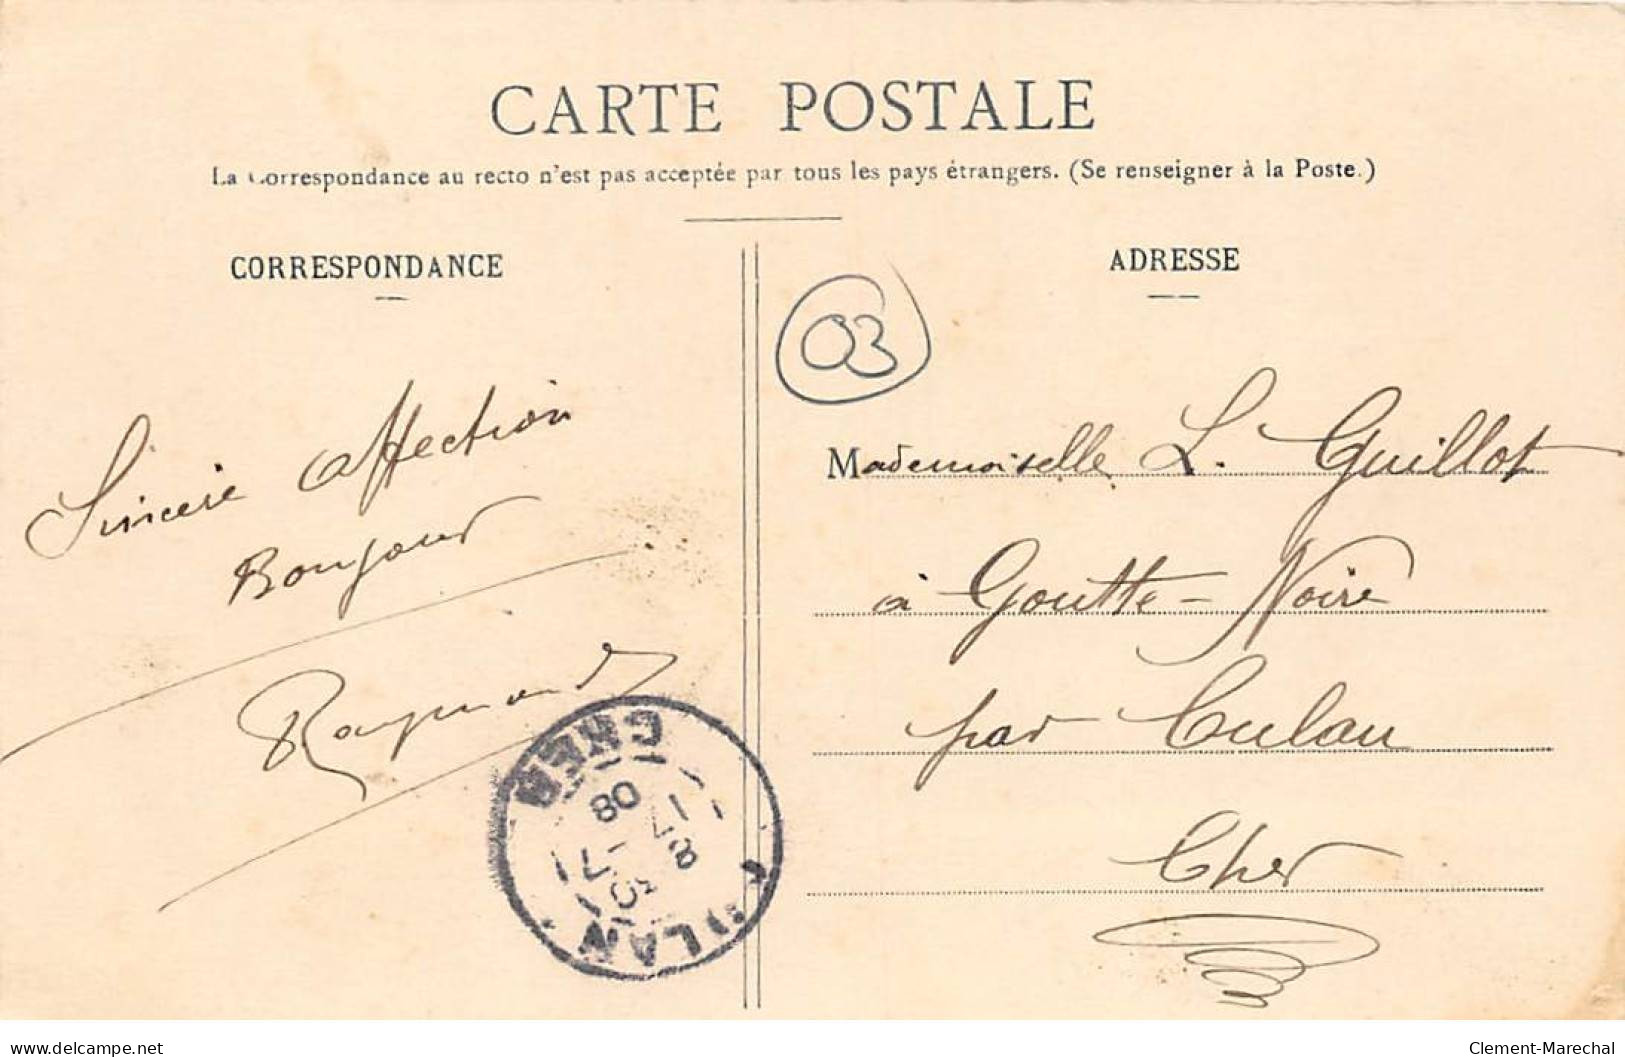 CARTE POSTALE
La Correspondance au recto n'est pas acceptée par tous les pays étrangers. (Se renseigner à la Poste.)
CORRESPONDANCE
Sincère affection
Bonjour
Raymond
ADRESSE
03
Mademoiselle L. Guillot
à Goutte-Noire
par Culan
Cher
CULAN
CHER
08
delcampe.net
Clement-Marechal